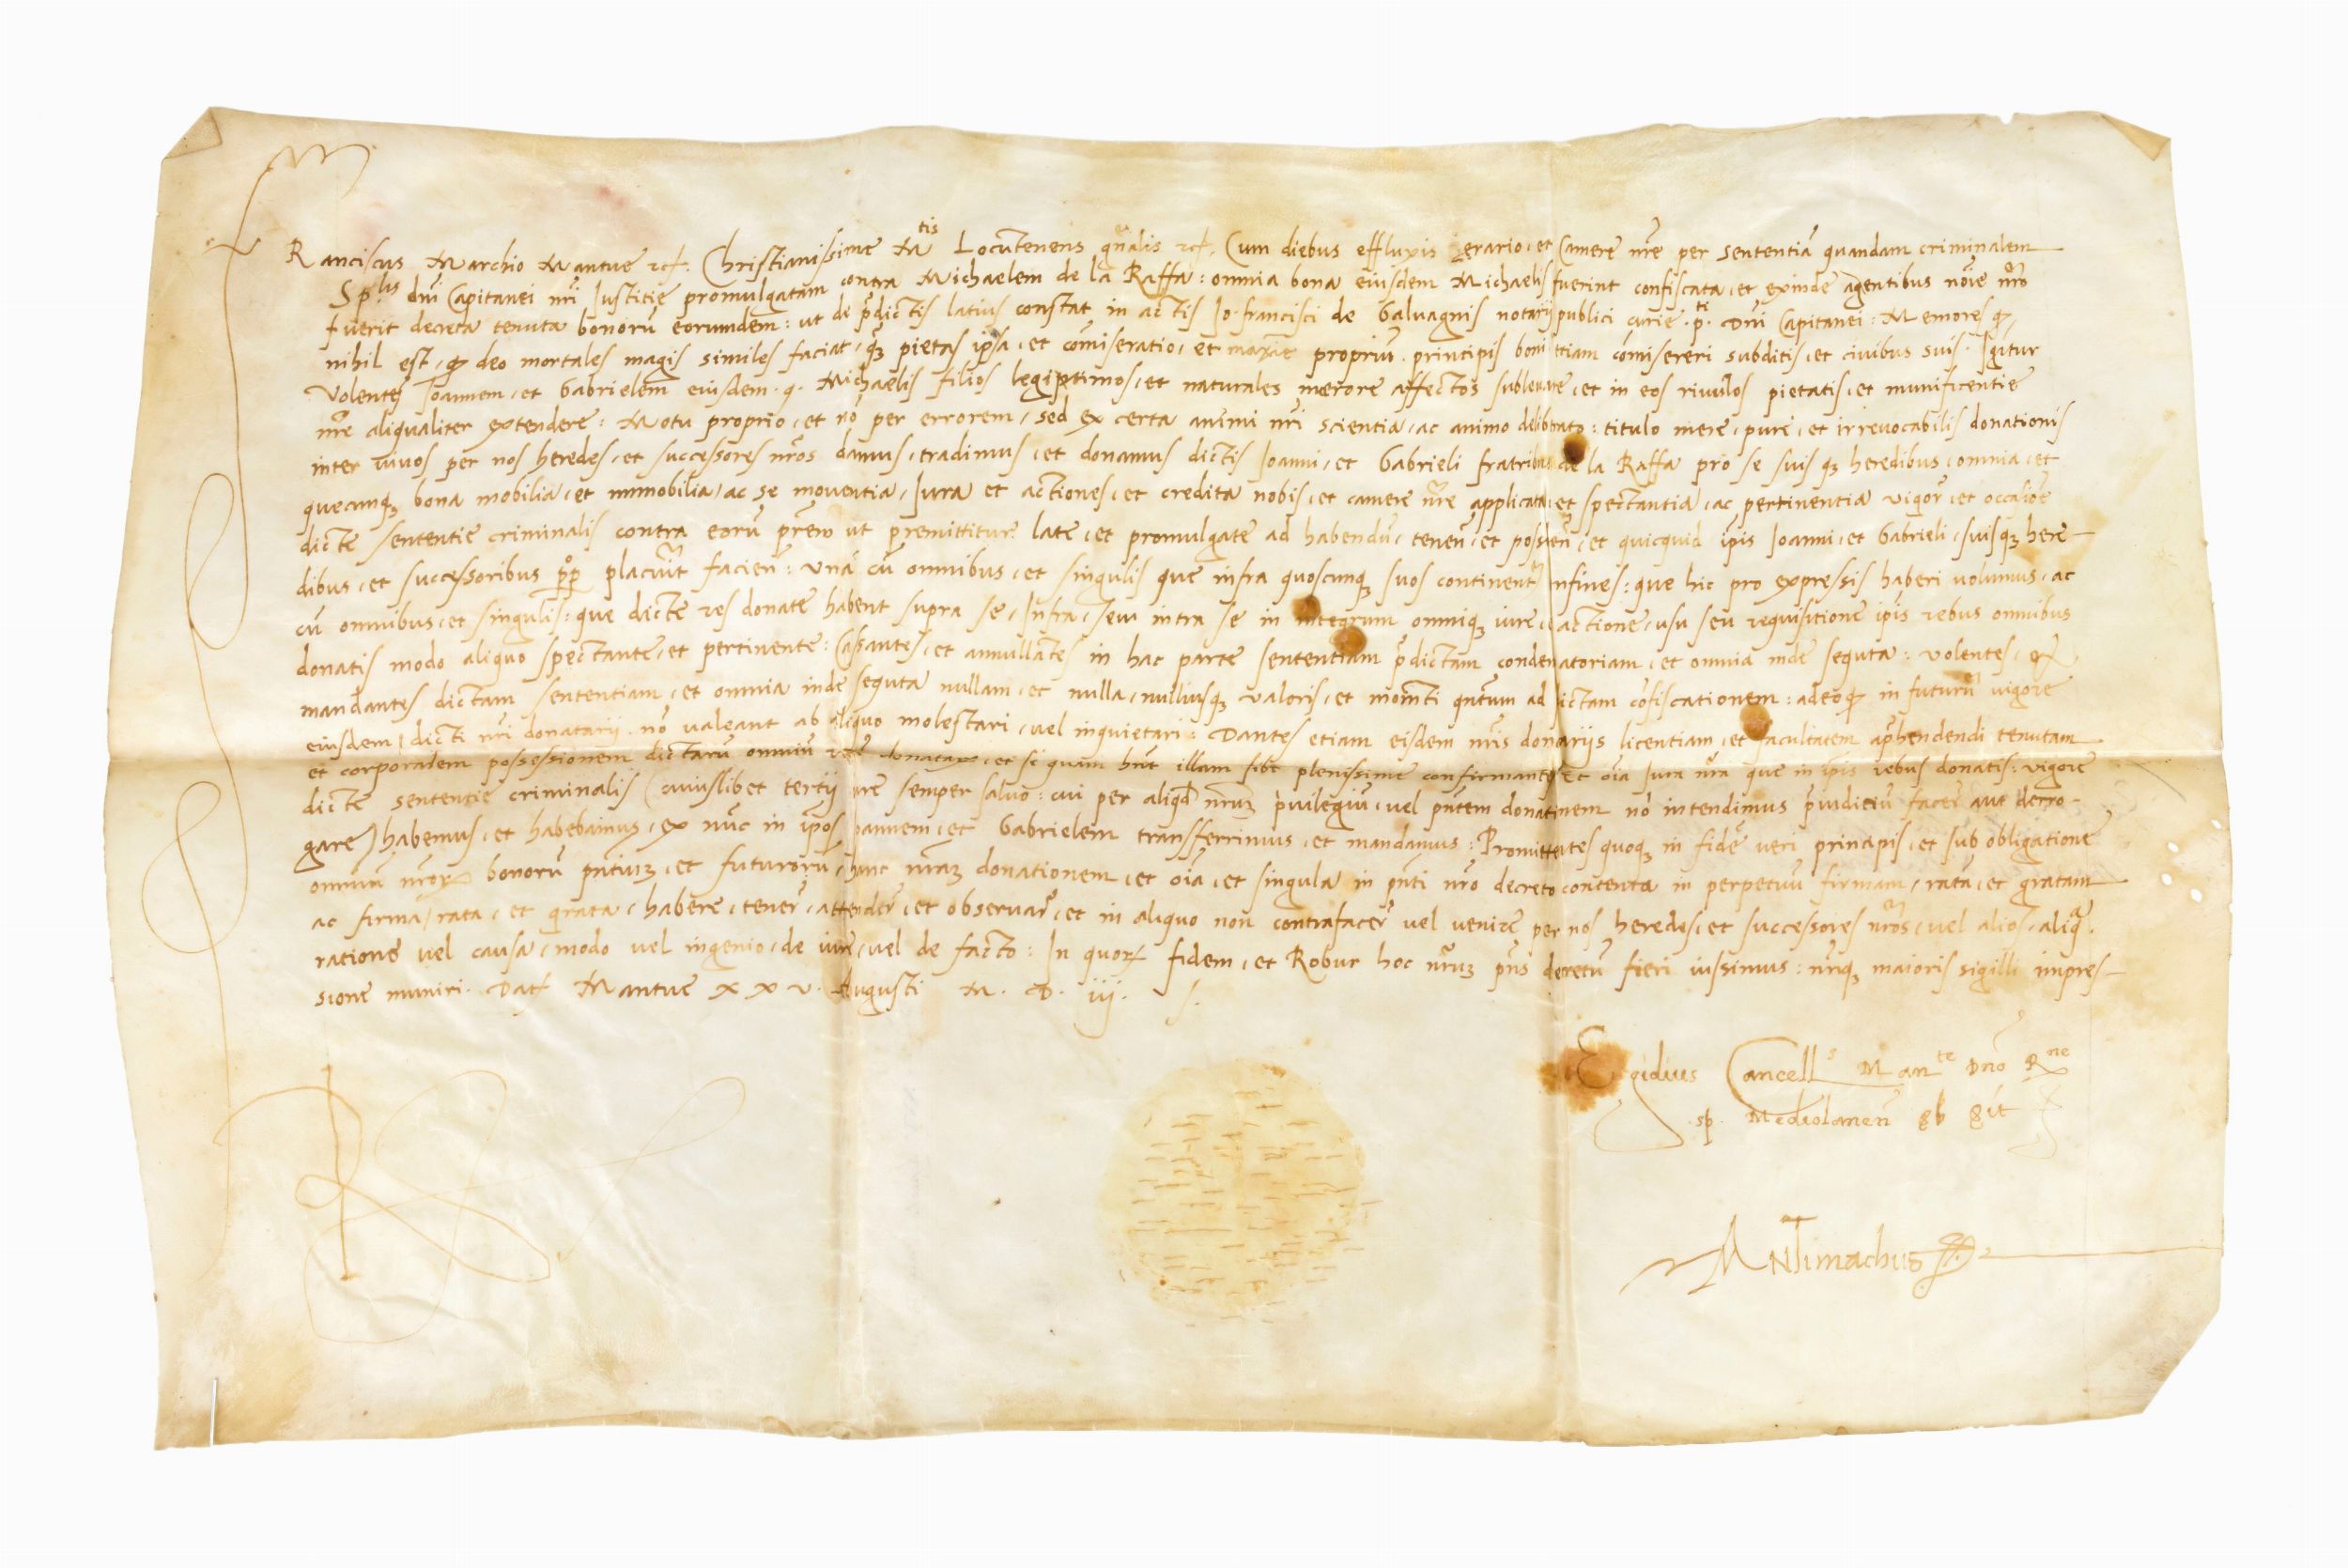 FRanciscus Marchio Mantue rcf. Christianissime M^tis Locūtenens gn̄alis rcf. Cum diebus effluxis Erario, et Camere nr̄e per sententiā quandam criminalem
Sp^lis dn̄i Capitanei nr̄i Justitię promulgatam contra Michaelem de la Raffa: omnia bona eiusdem Michaelis fuerint confiscata, et exinde agentibus noīe nr̄o
fuerit decreta tenuta bonorū eorumdem: ut de p̄dictis latius constat in actis Jo. francisci de Galuagnis notarij publici curie .p^ti. Dn̄i Capitanei: Memores q̄
nihil est, q̄ deo mortales magis similes faciat, q̄ꝫ pietas ip̄sa, et com̄iseratio, et maxīe propriū principis boni etiam com̄isereri subditis, et ciuibus suis. Igitur
Volentes Joannem, et Gabrielem eiusdem .q. Michaelis filios legiptimos, et naturales merore affectos subleuare, et in eos riuulos pietatis, et munificentie
nr̄e aliqualiter extendere: Motu proprio, et nō per errorem, sed ex certa animi nr̄i scientia, ac animo deliberato: titulo mere, pure, et irreuocabilis donationis
inter viuos per nos heredes, et successores nr̄os damus, tradimus, et donamus dictis Joanni, et Gabrieli fratribus de la Raffa pro se suisqꝫ heredibus, omnia, et
quecunqꝫ bona mobilia, et immobilia, ac se mouentia, Jura et actiones, et credita nobis, et camere nr̄e applicata, et spectantia, ac pertinentia vigor̄, et occaīoe
dicte sententie criminalis contra eorū pr̄em ut premittitur late, et promulgate ad habendū, tenen̄, et possiden̄, et quicquid ip̄is Joanni, et Gabrieli, suisqꝫ here-
dibus, et successoribus pp̄ placuit facien̄: Vnā cū omnibus, et singulis que infra quoscunqꝫ suos continent̄ confines: que hic pro expressis haberi volumus, ac
cū omnibus, et singulis: que dicte res donate habent supra se, Infra, seu intra se in integrum omniqꝫ iure, et actione, usu seu requisitione ip̄is rebus omnibus
donatis modo aliquo spectante, et pertinente: Cassantes, et annullantes in hac parte sententiam p̄dictam condenatoriam, et omnia inde seguta: Volentes, et
mandantes dictam sententiam, et omnia inde seguta nullam, et nulla, nulliusqꝫ valoris, et mom̄ti qn̄tum ad dictam cōfiscationem: adeoq̄ in futurū vigore
eiusdem, dicti nr̄i donatarij nō valeant ab aliquo molestari, vel inquietari: Dantes etiam eisdem nr̄is donatariis licentiam, et facultatem ap̄hendendi tenutam
et corporalem possessionem dictarū omniū rer̄ donatarꝝ, et si quam hn̄t illam sibi plenissime confirmantes, Et oīa Jura nr̄a que in ip̄is rebus donatis: vigore
dicte sententie criminalis (cuiuslibet tertij iure semper saluo: cui per aliqđ nr̄uꝫ p̄uilegiū, vel pn̄tem donationem nō intendimus p̄iudiciū facer̄ aut derro-
gare) habemus, et habebamus, ex nūc in ip̄os Joannem, et Gabrielem transferrimus, et mandamus: Promittentes quoqꝫ in fidē veri principis, et sub obligatione
omniū nr̄orꝝ bonorū pn̄tiuꝫ, et futurorū, hanc nr̄aꝫ donationem, et oīa, et singula in pn̄ti nr̄o decreto contenta in perpetuū firmam, ratā, et gratam
ac firma, rata, et grata, habere, tener̄, attender̄, et obseruar̄, et in aliquo non contrafacer̄ vel venire per nos heredes, et successores nr̄os, vel alios, aliq^a.
ratione vel causa, modo vel ingenio, de iure, vel de facto: In quorꝝ fidem, et Robur hoc nr̄uꝫ pn̄s decretū fieri iussimus: nr̄iqꝫ maioris sigilli impres-
sione muniri. Dat̄ Mantue xxv. Augusti M. D. iij.
Egidius Cancell^s Man^te Dn̄o R^ne
sp. Mediolanen̄
ANTimachus